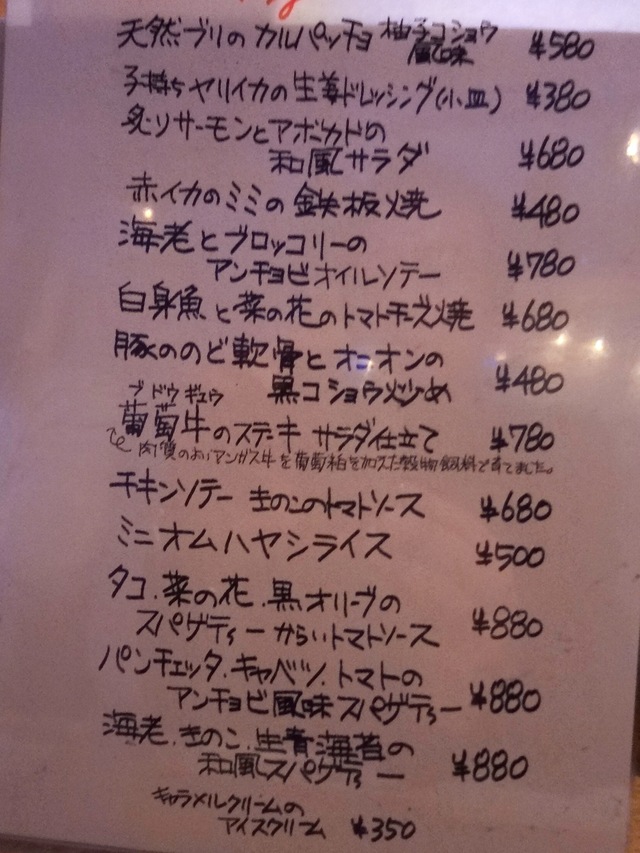 天然ブリのカルパッチョ 柚子コショウ風味 ¥580
子持ちヤリイカの生姜ドレッシング(小皿) ¥380
炙りサーモンとアボカドの
和風サラダ ¥680
赤イカのミミの鉄板焼 ¥480
海老とブロッコリーの
アンチョビオイルソテー ¥780
白身魚と菜の花のトマトチーズ焼 ¥680
豚ののど軟骨とオニオンの
黒コショウ炒め ¥480
ブドウギュウ
葡萄牛のステーキ サラダ仕立て ¥780
肉質のよいアンガス牛を葡萄粕を加えた穀物飼料で育てました。
チキンソテー きのこのトマトソース ¥680
ミニオムハヤシライス ¥500
タコ.菜の花.黒オリーブの
スパゲティー からいトマトソース ¥880
パンチェッタ.キャベツ.トマトの
アンチョビ風味スパゲティー ¥880
海老.きのこ.生青海苔の
和風スパゲティー ¥880
キャラメルクリームの
アイスクリーム ¥350